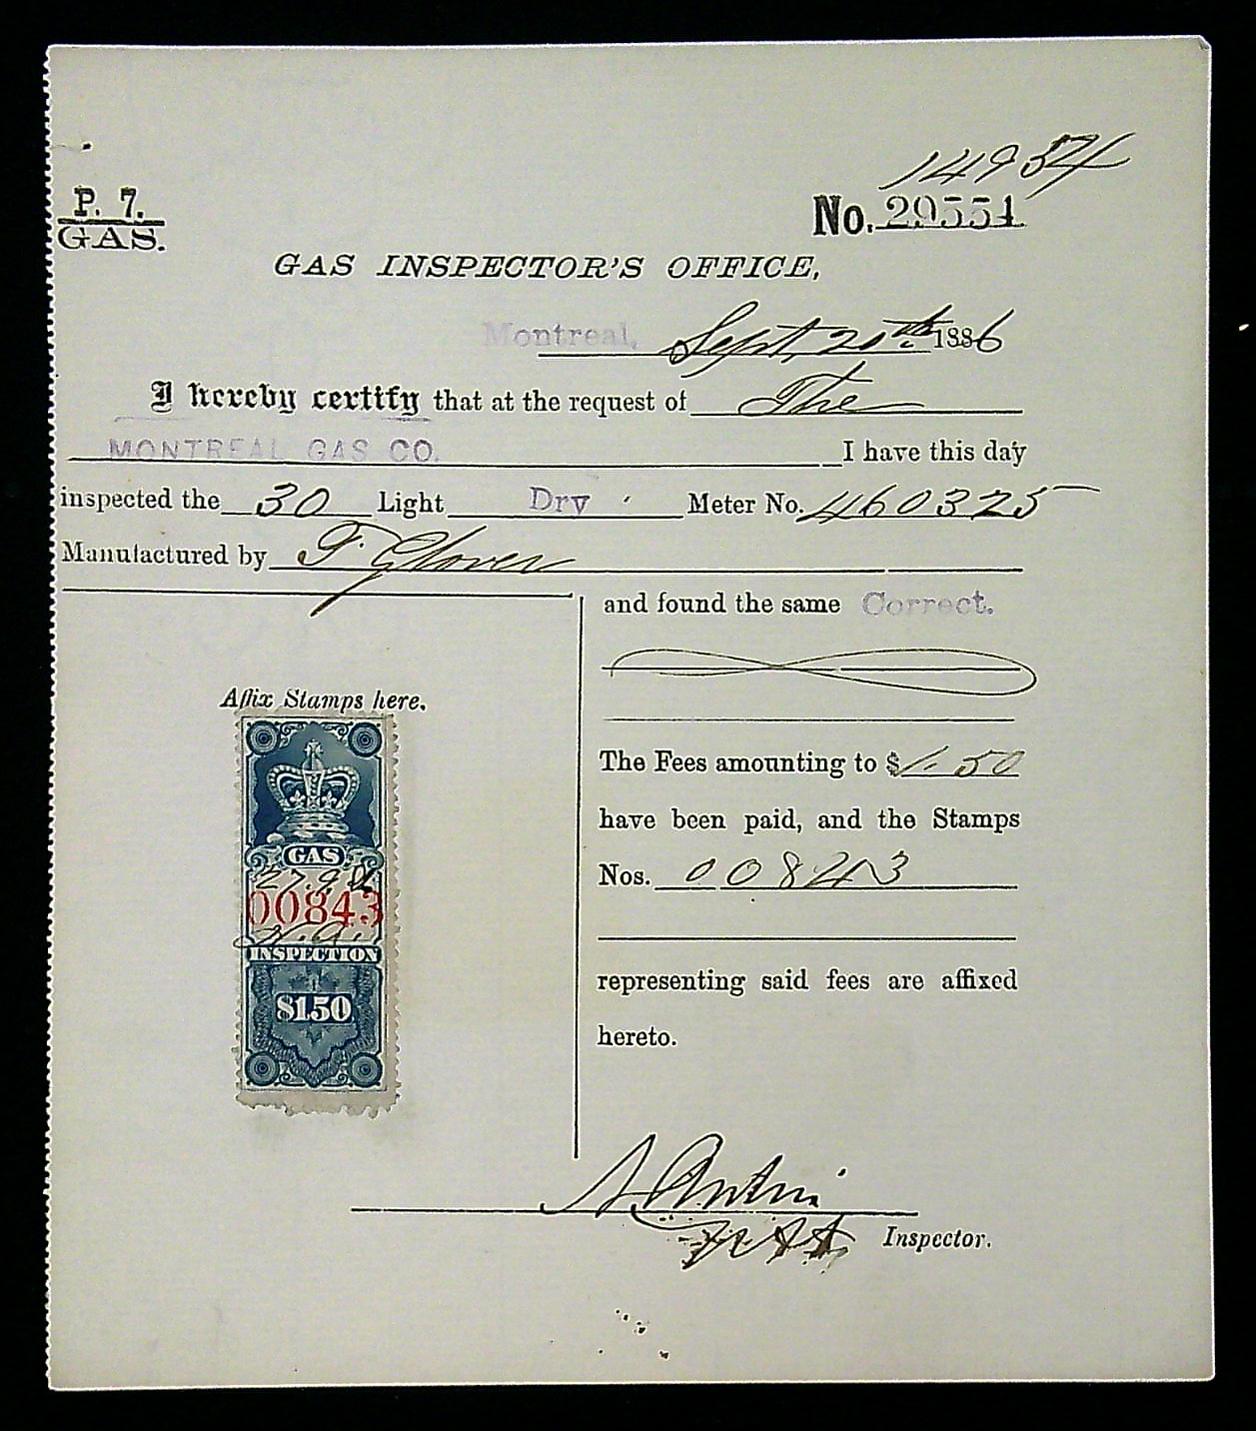 14934
P. 7.
GAS.
No. 29554
GAS INSPECTOR'S OFFICE,
Montreal, Sept, 20th. 1886
I hereby certify that at the request of The
MONTREAL GAS CO. I have this day
inspected the 30 Light Dry Meter No. 460325
Manufactured by T. Glover
and found the same Correct.
Affix Stamps here.
The Fees amounting to $1.50
have been paid, and the Stamps
Nos. 00843
representing said fees are affixed
hereto.
GAS
27.9.86
00843
INSPECTION
$1.50
Inspector.